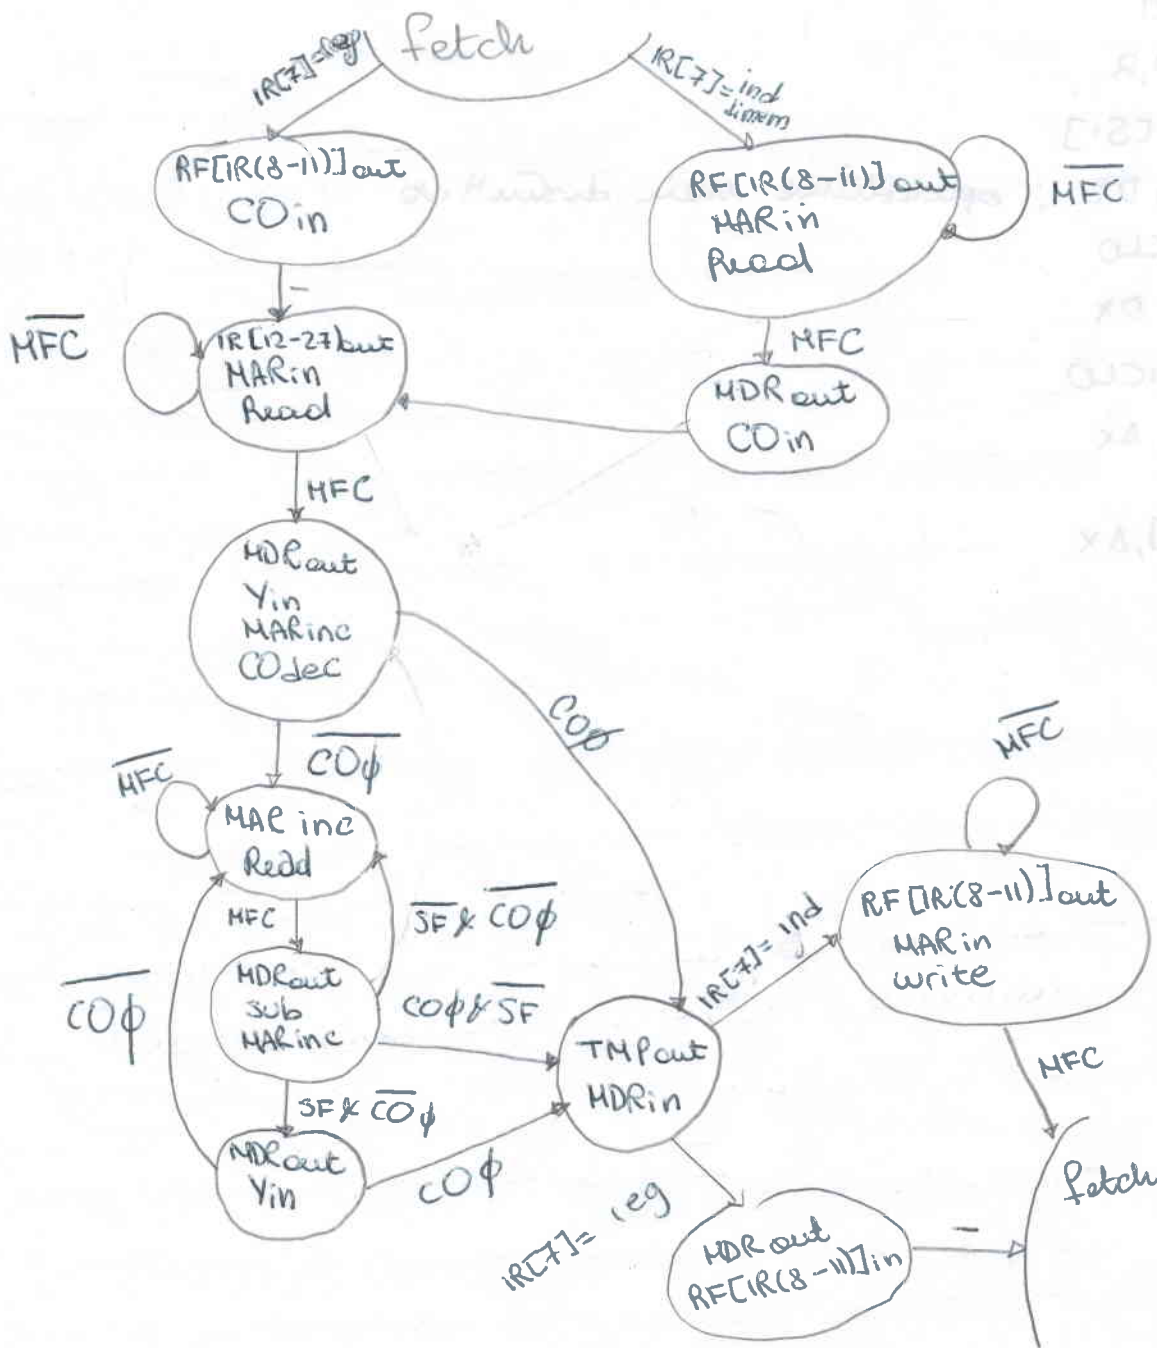 fetch
IR[7]=reg
IR[7]=ind
RF[IR(8-11)]out
COin
RF[IR(8-11)]out
MARin
Read
MFC
-
MFC
IR[12-27]out
MARin
Read
MFC
MDRout
COin
MFC
MDRout
Yin
MARinc
COdec
COϕ
COϕ
MFC
MAR inc
Read
MFC
SF & COϕ
COϕ
MDRout
sub
MARinc
COϕ & SF
SF & COϕ
MDRout
Yin
COϕ
TMPout
MDRin
IR[7]=ind
MFC
RF[IR(8-11)]out
MARin
write
MFC
fetch
IR[7]= reg
MDRout
RF[IR(8-11)]in
-